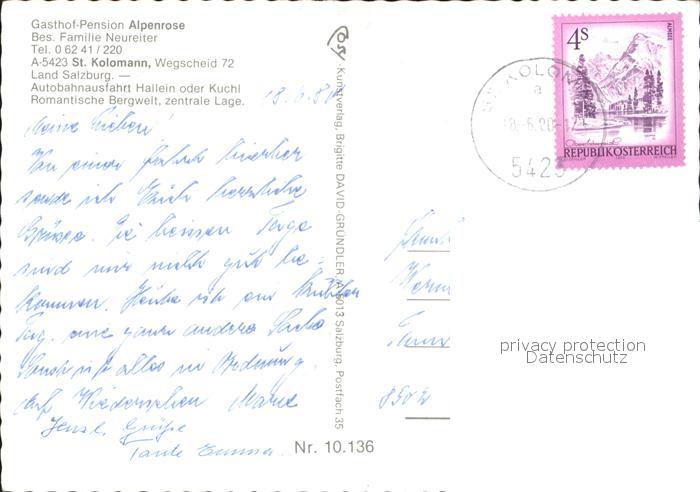 Gasthof-Pension Alpenrose
Bes. Familie Neureiter
Tel. 0 62 41 / 220
A-5423 St. Kolomann, Wegscheid 72
Land Salzburg. —
Autobahnausfahrt Hallein oder Kuchl
Romantische Bergwelt, zentrale Lage.
Meine Lieben!
Von einer hierher
sende ich Euch herzliche
Grüsse. Die heissen Tage
sind mir nicht gut be-
kommen. Heute ist ein kühler
Tag, eine ganz andere Sache
Sonst ist alles in Ordnung.
Auf Wiedersehen
Grüße
Tante Emma
Kunstverlag, Brigitte DAVID-GRÜNDLER, A-5013 Salzburg, Postfach 35
Nr. 10.136
4S
ALMSEE
REPUBLIK ÖSTERREICH
ST. KOLOM
a
5423
8502
privacy protection
Datenschutz